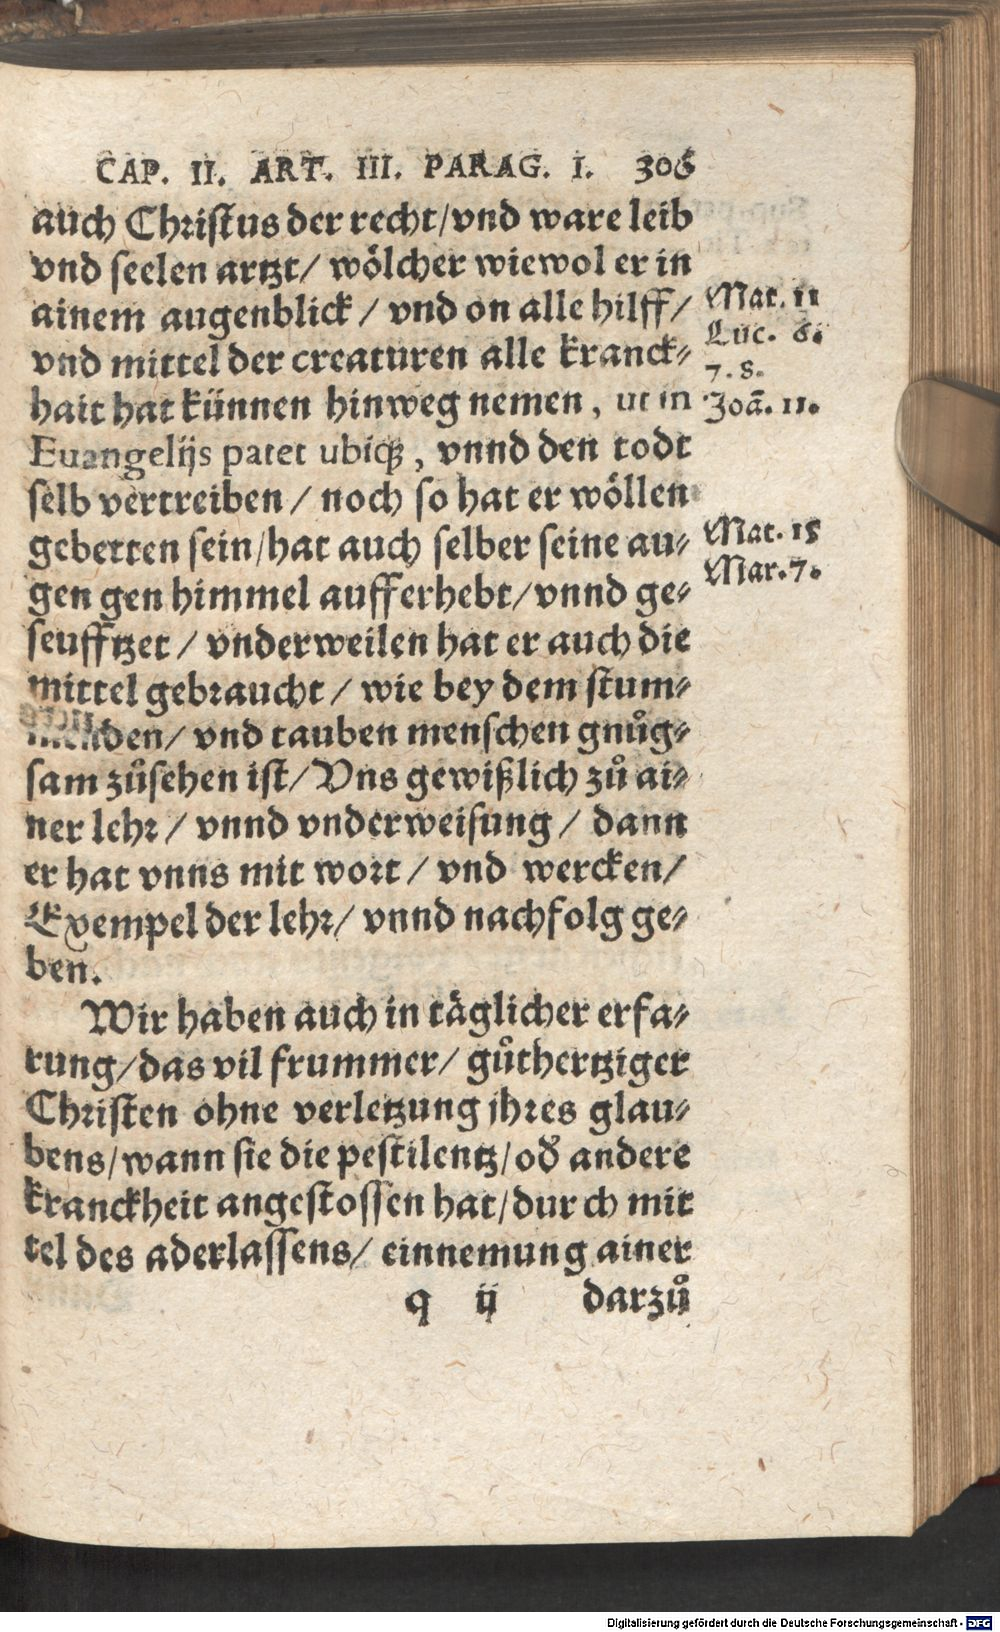 CAP. II. ART. III. PARAG. I. 306
auch Christus der recht/vnd ware leib
vnd seelen artzt/ wölcher wiewol er in
ainem augenblick / vnd on alle hilff/
vnd mittel der creaturen alle kranck⸗
hait hat künnen hinweg nemen, ut in
Euangelijs patet ubiq́;, vnnd den todt
selb vertreiben / noch so hat er wöllen
gebetten sein/hat auch selber seine au⸗
gen gen himmel aufferhebt/vnnd ge⸗
seufftzet / vnderweilen hat er auch die
mittel gebraucht / wie bey dem stum⸗
menden/ vnd tauben menschen gnůg⸗
sam zůsehen ist/Vns gewißlich zů ai⸗
ner lehr / vnnd vnderweisung / dann
er hat vnns mit wort / vnd wercken/
Exempel der lehr/ vnnd nachfolg ge⸗
ben.
Wir haben auch in täglicher erfa⸗
rung/das vil frummer/ gůthertziger
Christen ohne verletzung jhres glau⸗
bens/wann sie die pestilentz/oď andere
kranckheit angestossen hat/durch mit
tel des aderlassens/ einnemung ainer
q ij darzů
Mat. 11
Luc. 6.
7. 8.
Joā. 11.
Mat. 15
Mar. 7.
Digitalisierung gefördert durch die Deutsche Forschungsgemeinschaft - DFG